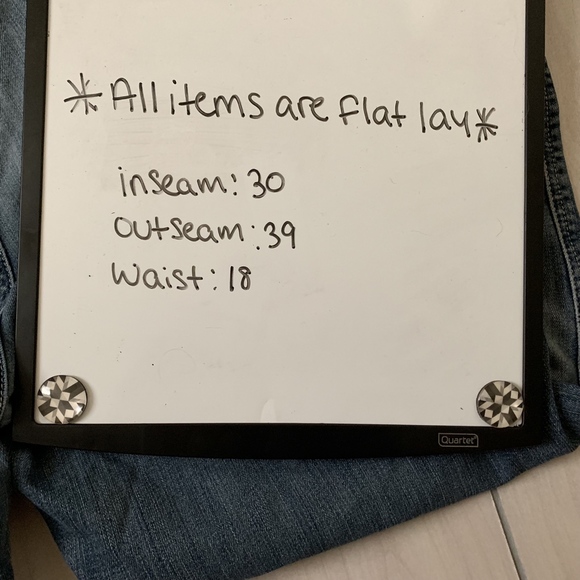 *All items are flat lay*
inseam: 30
outseam: 39
Waist: 18
Quartet